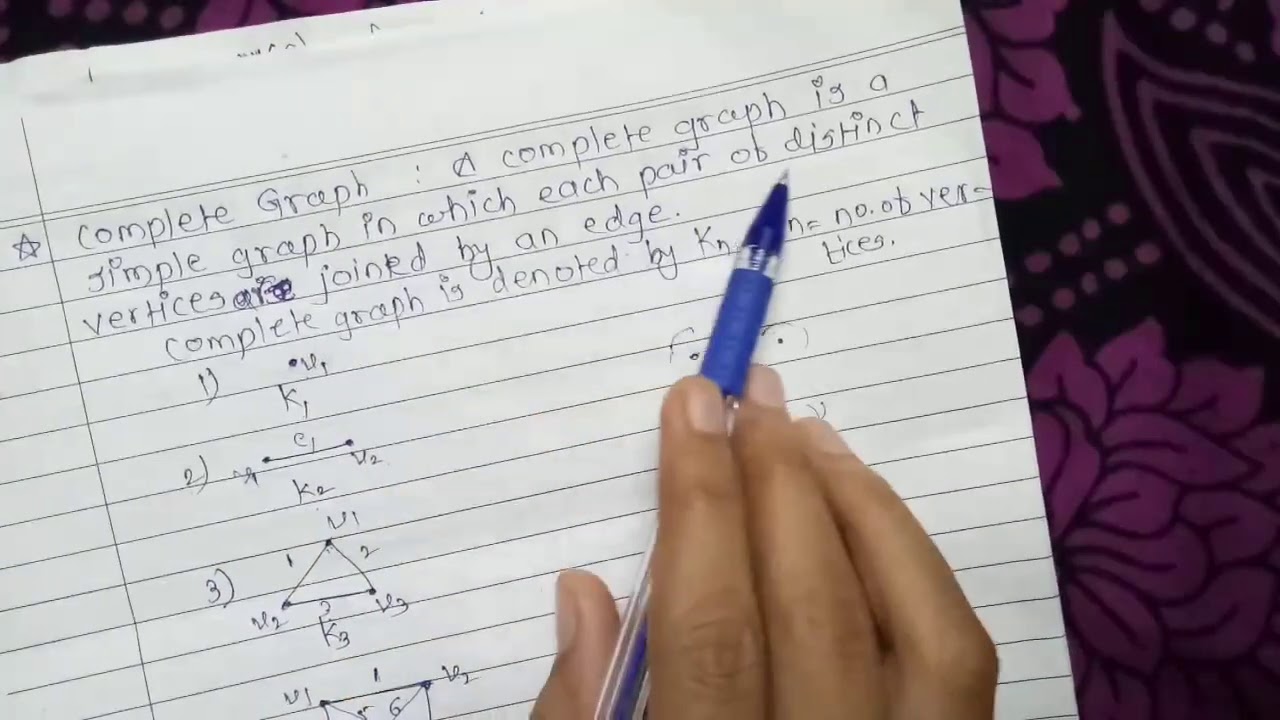 ☆ Complete Graph : A complete graph is a
simple graph in which each pair of distinct
vertices are joined by an edge.
complete graph is denoted by Kn n = no. of ver-
tices.
1) v1
K1
2) e1
v1 v2
K2
v1
3) 1 2
v2 3 v3
K3
1
v1 v2
5 6